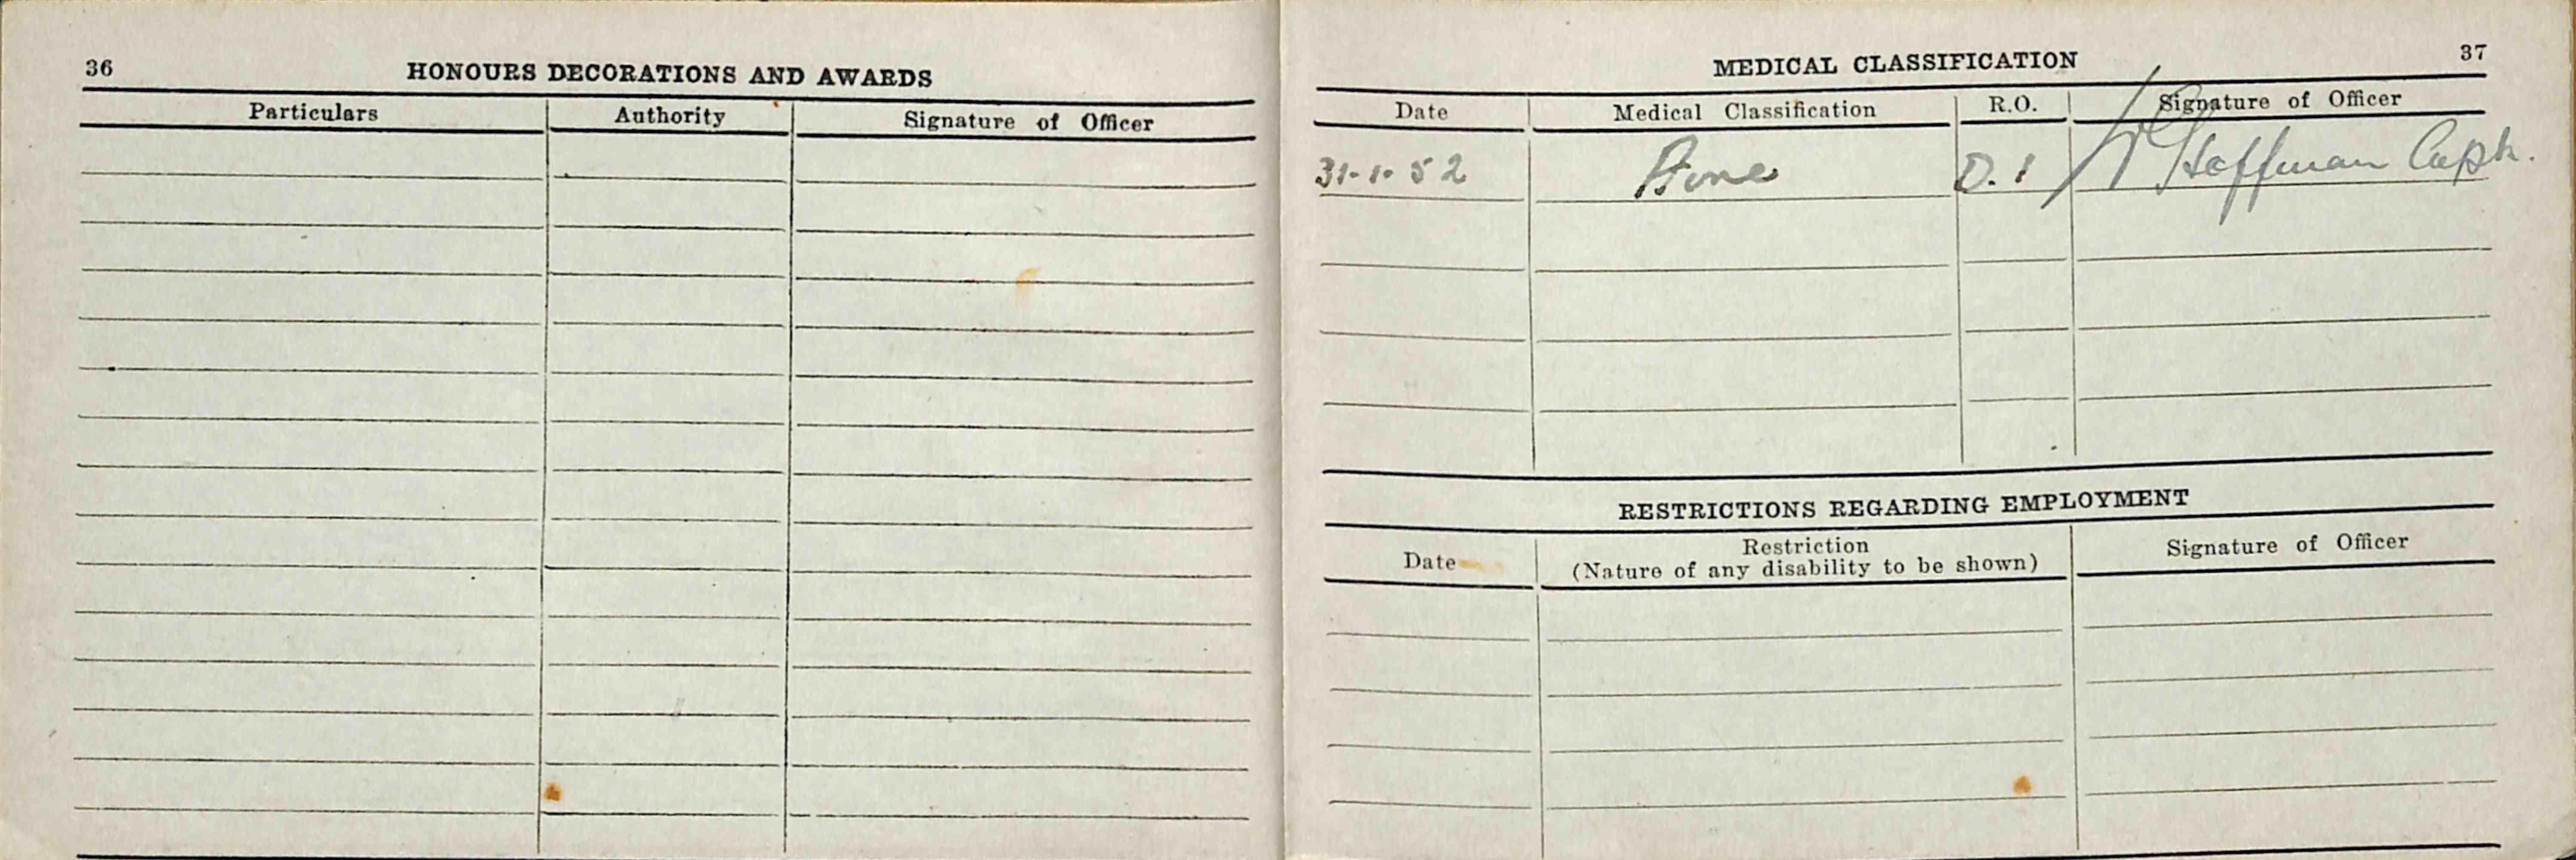 36
HONOURS DECORATIONS AND AWARDS
Particulars Authority Signature of Officer
37
MEDICAL CLASSIFICATION
Date Medical Classification R.O. Signature of Officer
31-1-52 A one D.1 Hoffman Capt.
RESTRICTIONS REGARDING EMPLOYMENT
Date Restriction Signature of Officer
(Nature of any disability to be shown)